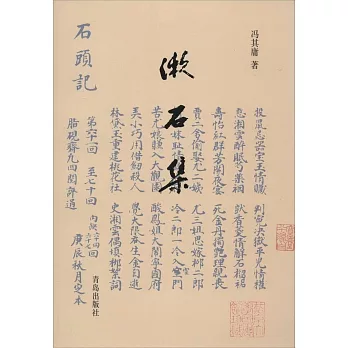 冯其庸 著
漱石集
石頭記
投鼠忌器宝玉情贓 判冤决獄平児情權
憨湘雲醉眠芍薬裀 獃香菱情解石榴裙
壽怡紅群芳開夜宴 死金丹独艷理親丧
賈二舍偷娶尤二姨 尤三姐思嫁柳二郎
妹耻情 冷二郎一冷入空門
苦尤娘賺入大觀園 酸鳳姐大閙寧國府
美小巧用借劍殺人 覺大限吞生金自逝
林黛玉重建桃花社 史湘雲偶填柳絮詞
第六十一回 至七十回 内缺六十四 六十七回
脂硯斋凡四閱評過 庚辰秋月定本
青岛出版社